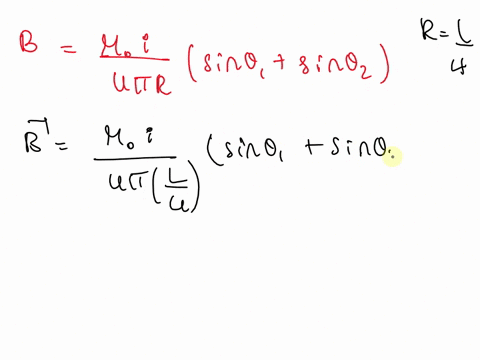 B = μ₀ i / 4πR (sinθ₁ + sinθ₂)
R = L / 4
B⃗ = μ₀ i / 4π(L/4) (sinθ₁ + sinθ